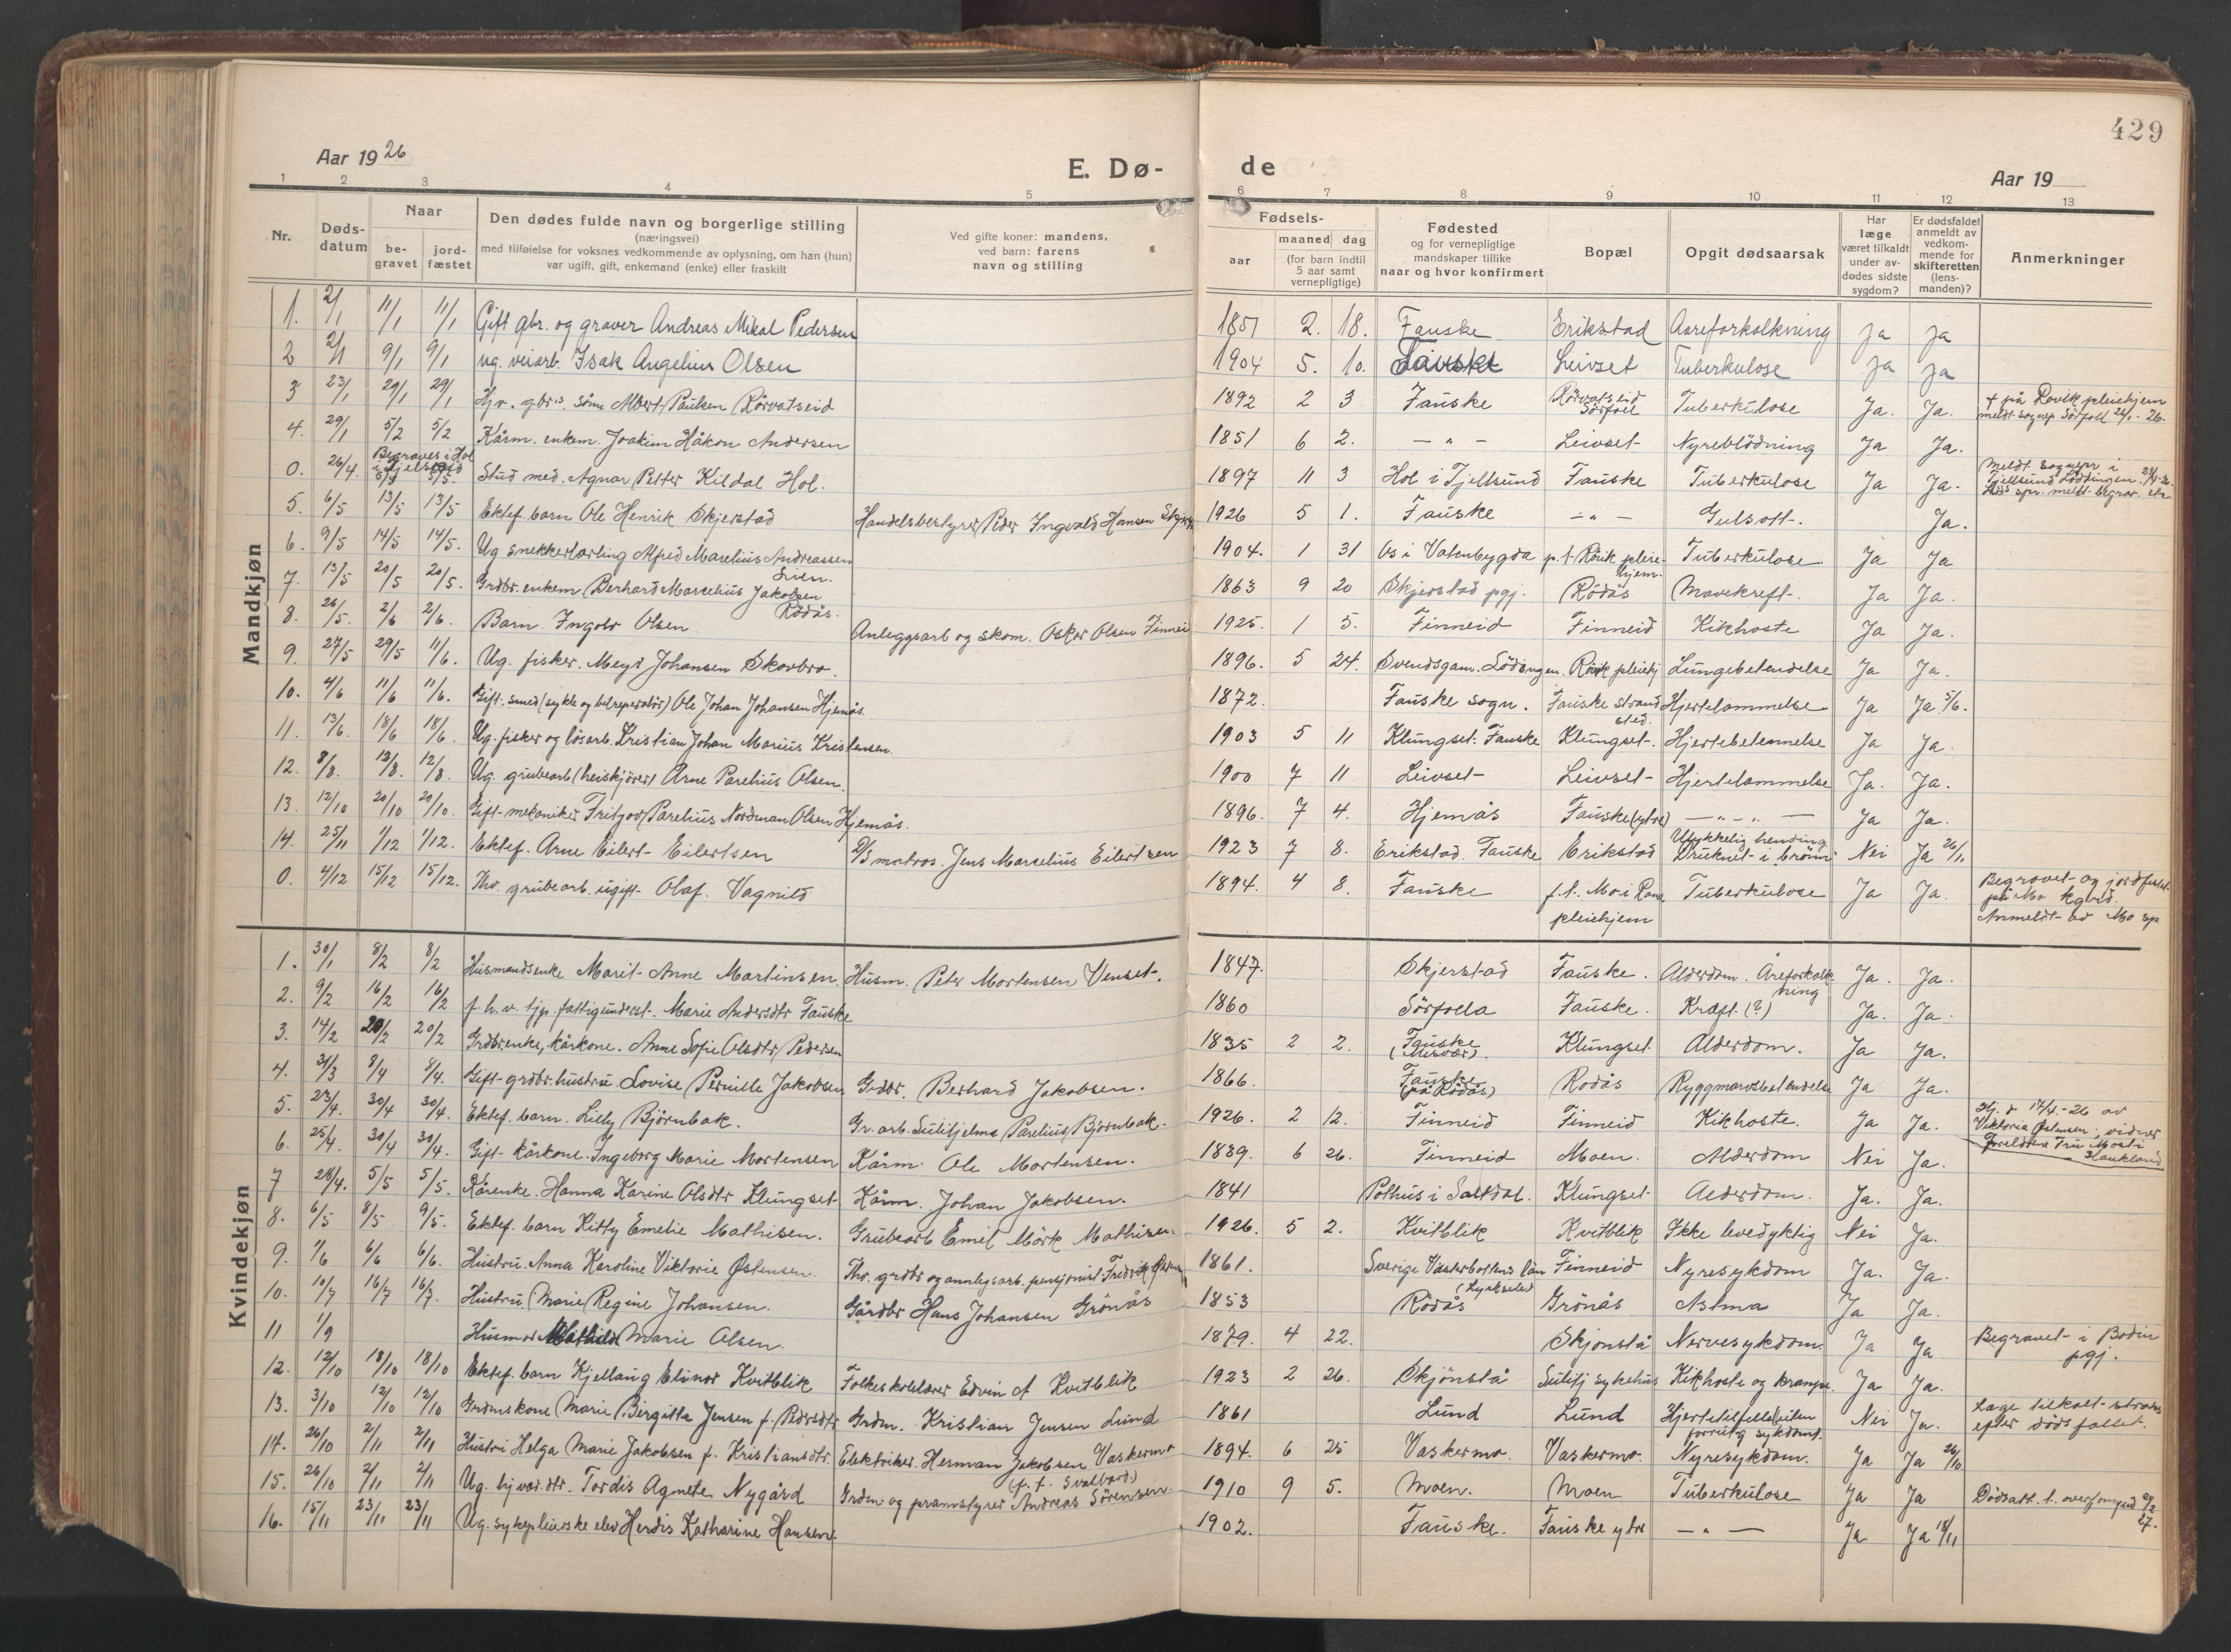 429
Aar 1926
E. Dø-
de
Aar 19
1 2 3 4 5 6 7 8 9 10 11 12 13
Nr.
Døds-
datum
Naar
be-
gravet
jord-
fæstet
Den dødes fulde navn og borgerlige stilling
(næringsvei)
med tilføielse for voksnes vedkommende av oplysning, om han (hun)
var ugift, gift, enkemand (enke) eller fraskilt
Ved gifte koner: mandens,
ved barn: farens
navn og stilling
Fødsels-
aar
maaned dag
(for barn indtil
5 aar samt
vernepligtige)
Fødested
og for vernepligtige
mandskaper tillike
naar og hvor konfirmert
Bopæl
Opgit dødsaarsak
Har
læge
været tilkaldt
under av-
dødes sidste
sygdom?
Er dødsfaldet
anmeldt av
vedkom-
mende for
skifteretten
(lens-
manden)?
Anmerkninger
Mandkjøn
1. 2/1 11/1 11/1 Gift gbr. og graver Andreas Mikal Pedersen 1851 2. 18. Fauske Erikstad Aareforkalkning Ja Ja
2 2/1 9/1 9/1 ug. veiarb. Isak Angelius Olsen 1904 5. 10. Fauske Leivset Tuberkulose Ja Ja
3 23/1 29/1 29/1 Hjv. gbr.s søns Albert Paulsen Rørvatseid 1892 2 3 Fauske Rørvatseid Sørfold Tuberkulose Ja. Ja. + på Røvik pleiehjem
meldt sognep Sørfold 26/1-26.
4. 29/1 5/2 5/2 Kårm. enkem. Joakim Håkon Andersen 1851 6 2. — " — Leivset Nyreblödning Ja Ja.
0. 26/4. Begraves i Hol
i Tjelsund 5/5 5/5. Stud med. Agnar Petter Kildal Hol. 1897 11 3 Hol i Tjellsund Fauske Tuberkulose Ja Ja. Meldt sognepr i
Tjellsund Lödingen
5. 6/5 13/5 13/5 Ektef. barn Ole Henrik Skjerstad Handelsbestyrer Peder Ingvald Hansen Skjerst 1926 5 1. Fauske — " — Gulsott. Ja.
6. 9/5 14/5 14/5. Ug snekkerlærling Alfred Marelius Andreassen
Lien. 1904. 1 31 Os i Vatnbygda p.t Rövik pleie-
hjem. Tuberkulose Ja Ja
7. 13/5 20/5 20/5. Grdbr. enkem Berhard Marselius Jakobsen
Rödås. 1863 9 20 Skjerstad pgj. Rödås Mavekreft. Ja Ja.
8. 26/5. 2/6 2/6. Barn. Ingolv Olsen Anleggsarb og skom. Oskar Olsen Finnei 1925. 1 5. Finneid Finneid Kikhoste Ja Ja.
9. 27/5 29/5 11/6. Ug. fisker. Meyer Johansen Skovbro. 1896. 5 24. Svendsgam. Lödingen. Rövik pleiehj Lungebetendelse Ja Ja.
10. 4/6 11/6 11/6. Gift. smed (sykle og bilreperatör) Ole Johan Johansen Hjemås. 1872. Fauske sogn. Fauske strand
sted. Hjertelammelse Ja Ja 5/6.
11. 13/6. 18/6 18/6. Ug. fisker og lösarb. Kristian Johan Marius Kristensen. 1903 5 11 Klungset. Fauske Klungset. Hjertebetennelse Ja Ja.
12. 8/8. 12/8. 12/8. Ug. grubearb (heiskjörer) Arne Parelius Olsen. 1900 7 11 Leivset Leivset Hjertelammelse Ja. Ja.
13. 12/10 20/10 20/10. Gift mekaniker Fritjov Parelius Nordman Olsen Hjemås. 1896. 7 4. Hjemås Fauske (ytre) — " — " — Ja Ja.
14. 25/11 1/12 1/12. Ektef. Arne Eilert Eilertsen D/S matros. Jens Marselius Eilertsen 1923 7 8. Erikstad. Fauske Erikstad Ulykkelig hending
Druknet i brönn Nei Ja 26/11
0. 4/12 15/12 15/12. Thv. grubearb. ugift Olaf. Vagnild 1894. 4 8. Fauske f.t. Mo i Rana
pleiehjem Tuberkulose Ja Ja. Begravet og jordfestet
på Mo kgrd.
Anmeldt av Mo sp
Kvindekjøn
1. 30/1 8/2 8/2 Husmandsenke Marit Anne Martinsen Husm. Peter Mortensen Venset. 1847. Skjerstad Fauske. Alderdom. Åreforkalk
ning Ja. Ja.
2. 9/2 16/2 16/2 f.h.v. tjp. fattigunderst. Marie Andersdtr Fauske 1860 Sörfolla Fauske. Kreft. (?) Ja. Ja.
3. 14/2 20/2 20/2 Grdbrenke, kårkone. Anne Sofie Olsdtr Pedersen 1835 2 2. Fauske Klungset Alderdom. Ja Ja.
4. 31/3 8/4 8/4. Gift grdbr. hustru Lovise Pernille Jakobsen Grdbr. Berhard Jakobsen. 1866. Fauske
(på Rödås) Rodås Ryggmarvsbetendelse Ja Ja.
5. 23/4. 30/4 30/4. Ektef. barn. Lilly Björnbak. Gr. arb. Sulitjelma Parelius Björnbak. 1926. 2 12. Finneid Finneid Kikhoste. Ja Ja. Hj. d 17/4.-26 av
Viktoria Østensen; vidner
Foreldrene Fru Mosti
Haukland
6. 25/4. 30/4 30/4. Gift kårkone. Ingeborg Marie Mortensen Kårm. Ole Mortensen. 1839. 6 26. Finneid Moen. Alderdom Nei Ja.
7 28/4. 5/5 5/5. Kårenke. Hanna Karine Olsdtr Klungset Kårm. Johan Jakobsen. 1841 Pothus i Saltdal. Klungset Alderdom. Ja. Ja.
8. 6/5 8/5 9/5. Ektef. barn Kitty Emelie Mathisen. Grubearb Emil Mörk Mathisen. 1926. 5 2. Kvitblik Kvitblik Ikke levedyktig Nei Ja.
9. 1/6 6/6 6/6. Hustru. Anna Karoline Viktorie Østensen. Thv. grdbr og annlegsarb. pensjonist Fredrik 1861. Sverige Vasterbottens län
(Lycksele) Finneid Nyresykdom Ja. Ja.
10. 10/7 16/7 16/7. Hustru Marie Regine Johansen. Gårdbr Hans Johansen Grönås 1853 Rödås Grönås Astma Ja Ja.
11 1/9 Husmor Mathilde Marie Olsen. 1879. 4 22. Skjonstå Nervesykdom. Ja Ja Begravet i Bodin
pgj.
12. 12/10 18/10 18/10 Ektef. barn Kjellaug Elinor Kvitblik Folkeskolelærer Edvin A Kvitblik 1923 2 26. Skjönstå Sulitj sykehus Kikhoste og krampe. Ja Ja.
13. 3/10 12/10 12/10 Grdmskone Marie Birgitta Jensen f. Pedersdtr Grdm. Kristian Jensen Lund 1861 Lund Lund Hjertetilfelle (uten
forrutg sykdom). Nei Ja. Læge tilkalt straks
efter dödsfallet.
14. 26/10 2/11 2/11 Hustru Helga Marie Jakobsen f. Kristiansdtr. Elektriker. Herman Jakobsen Vaskermo
(p.t. Svalbard.) 1894. 6 25 Vaskermo. Vaskermo. Nyresykdom. Ja Ja 26/10
15. 26/10 2/11 2/11 Ug. hjvær. dtr. Tordis Agnete Nygård Grdm. og pramstyrer Andreas Sörensen. 1910 9 5. Moen. Moen Tuberkulose Ja Ja Dödsatt. t. overformynd
27.
16. 15/11 23/11 23/11 Ug. sykepleierske elev Herdis Katharine Hansen. 1902. Fauske. Fauske ytre — " — Ja Ja 18/11